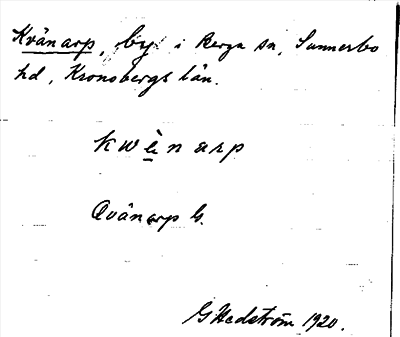 Kvänarp, by i Berga sn, Sunnerbo
hd, Kronobergs län.
kwènarp
Qvänarp G.
G Hedström 1920.